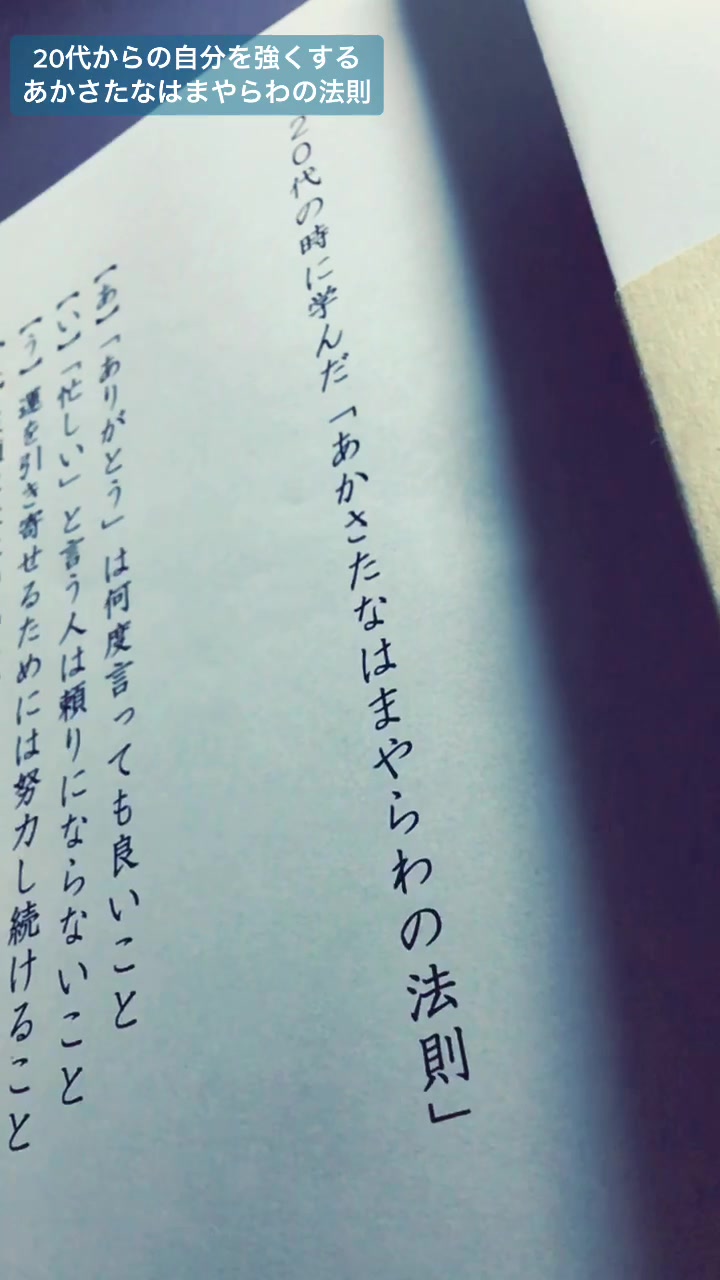 20代からの自分を強くする
あかさたなはまやらわの法則
20代の時に学んだ「あかさたなはまやらわの法則」
【あ】「ありがとう」は何度言っても良いこと
【い】「忙しい」と言う人は頼りにならないこと
【う】運を引き寄せるためには努力し続けること